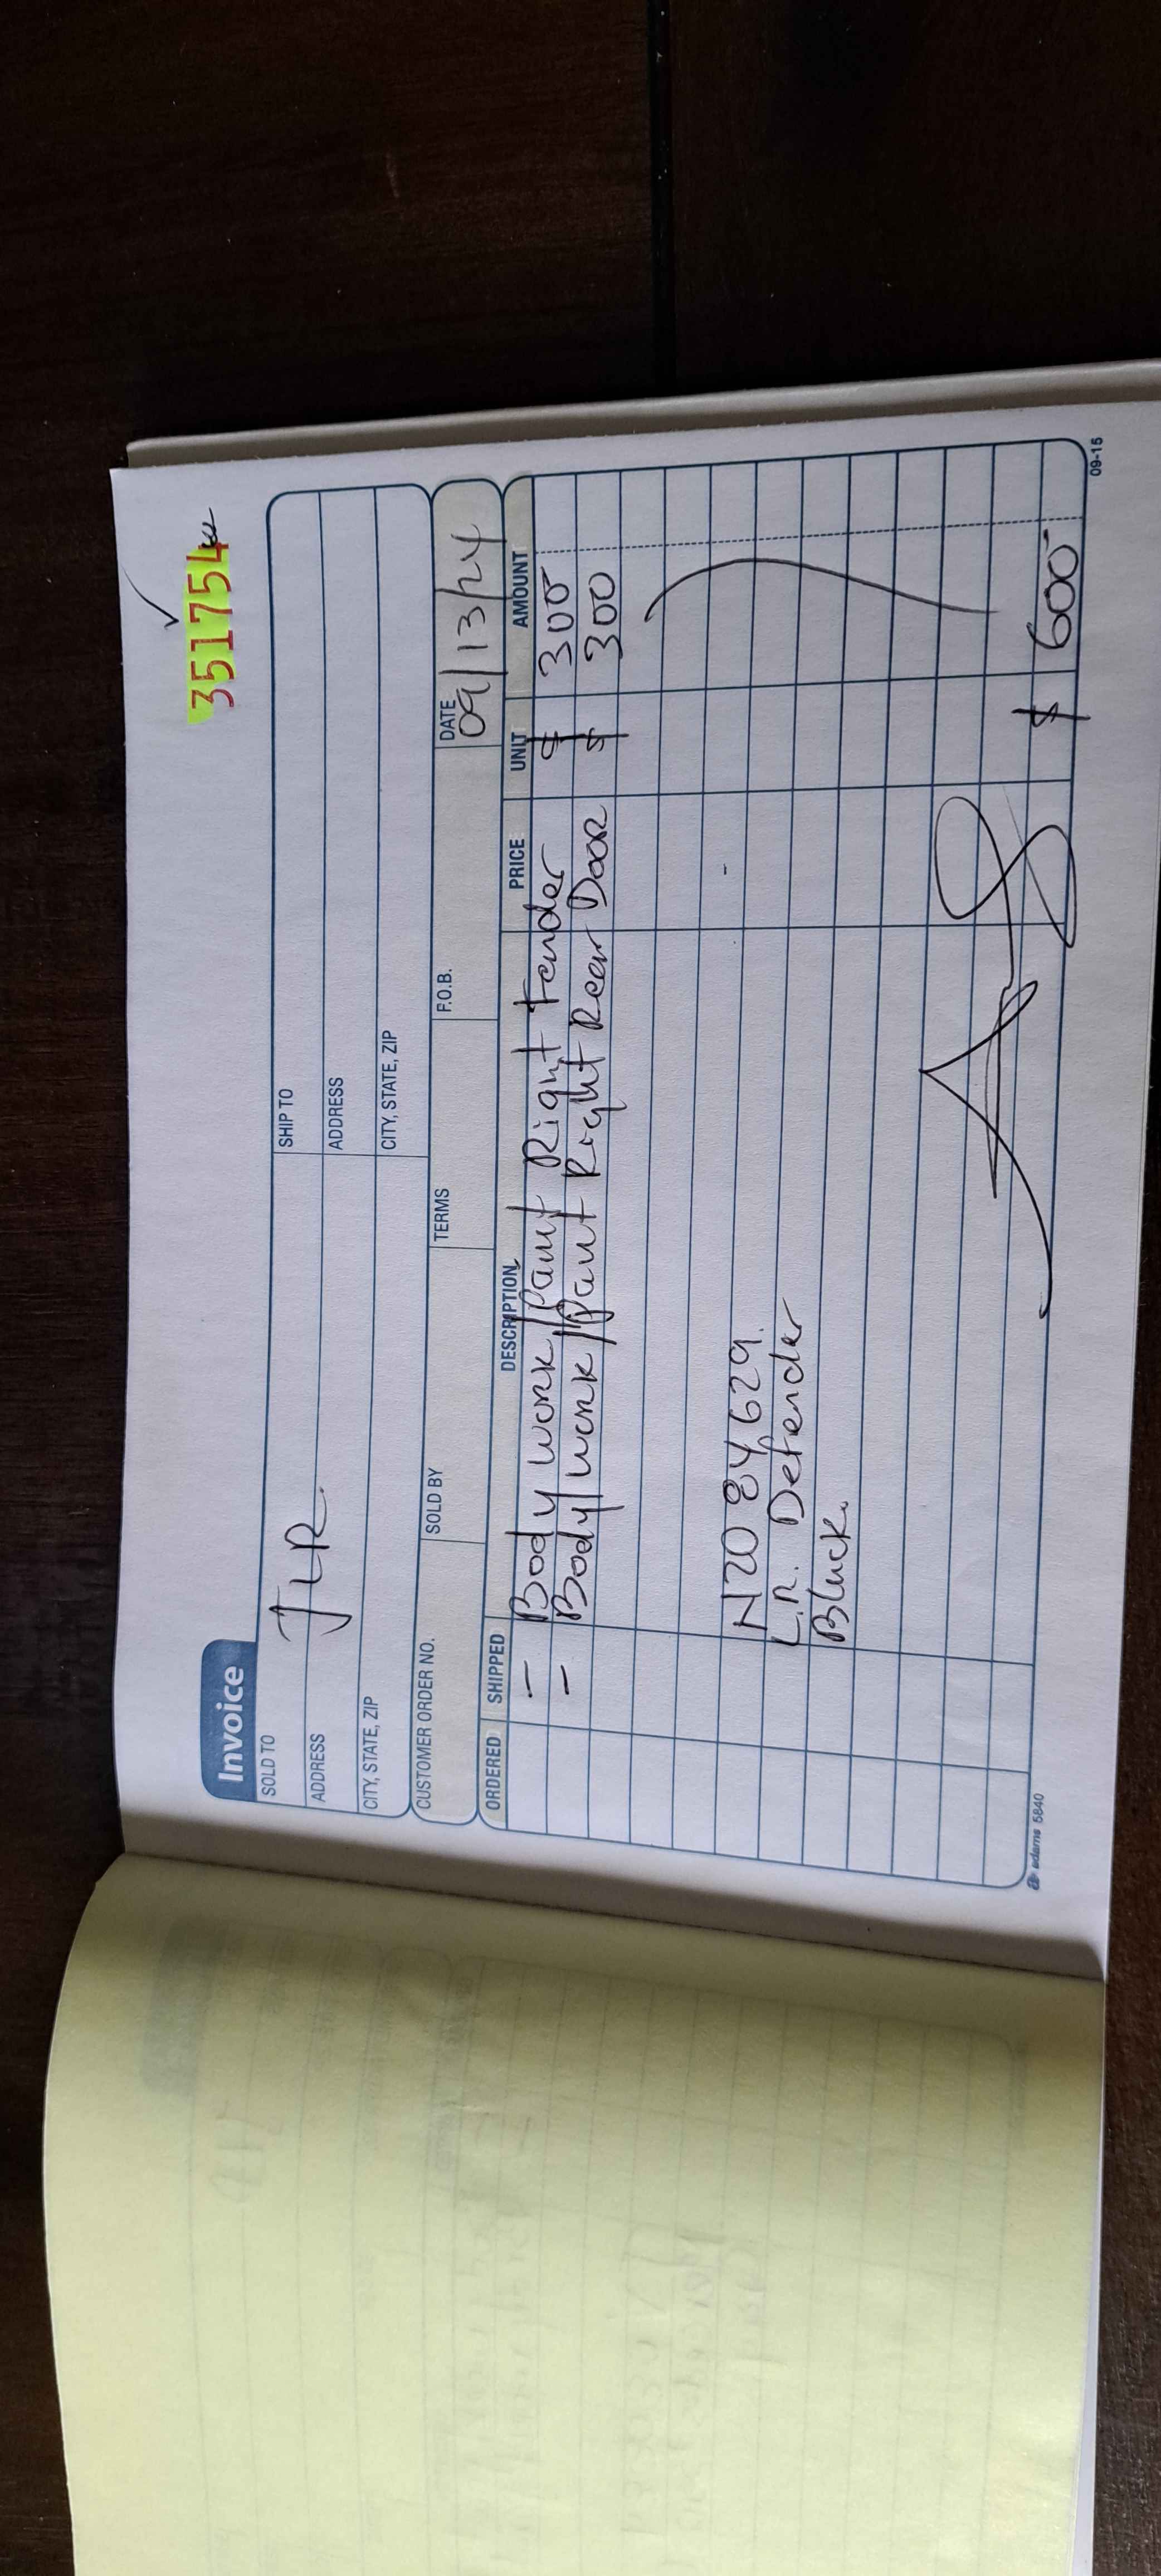 351754
Invoice
SOLD TO JLR
SHIP TO
ADDRESS
ADDRESS
CITY, STATE, ZIP
CITY, STATE, ZIP
CUSTOMER ORDER NO. SOLD BY TERMS F.O.B. DATE 09/13/24
ORDERED SHIPPED DESCRIPTION PRICE UNIT AMOUNT
- Body work/Paint Right Fender $ 300
- Body work/Paint Right Rear Door $ 300
N2084629.
L.R. Defender
Black.
$ 600
adams 5840
09-15